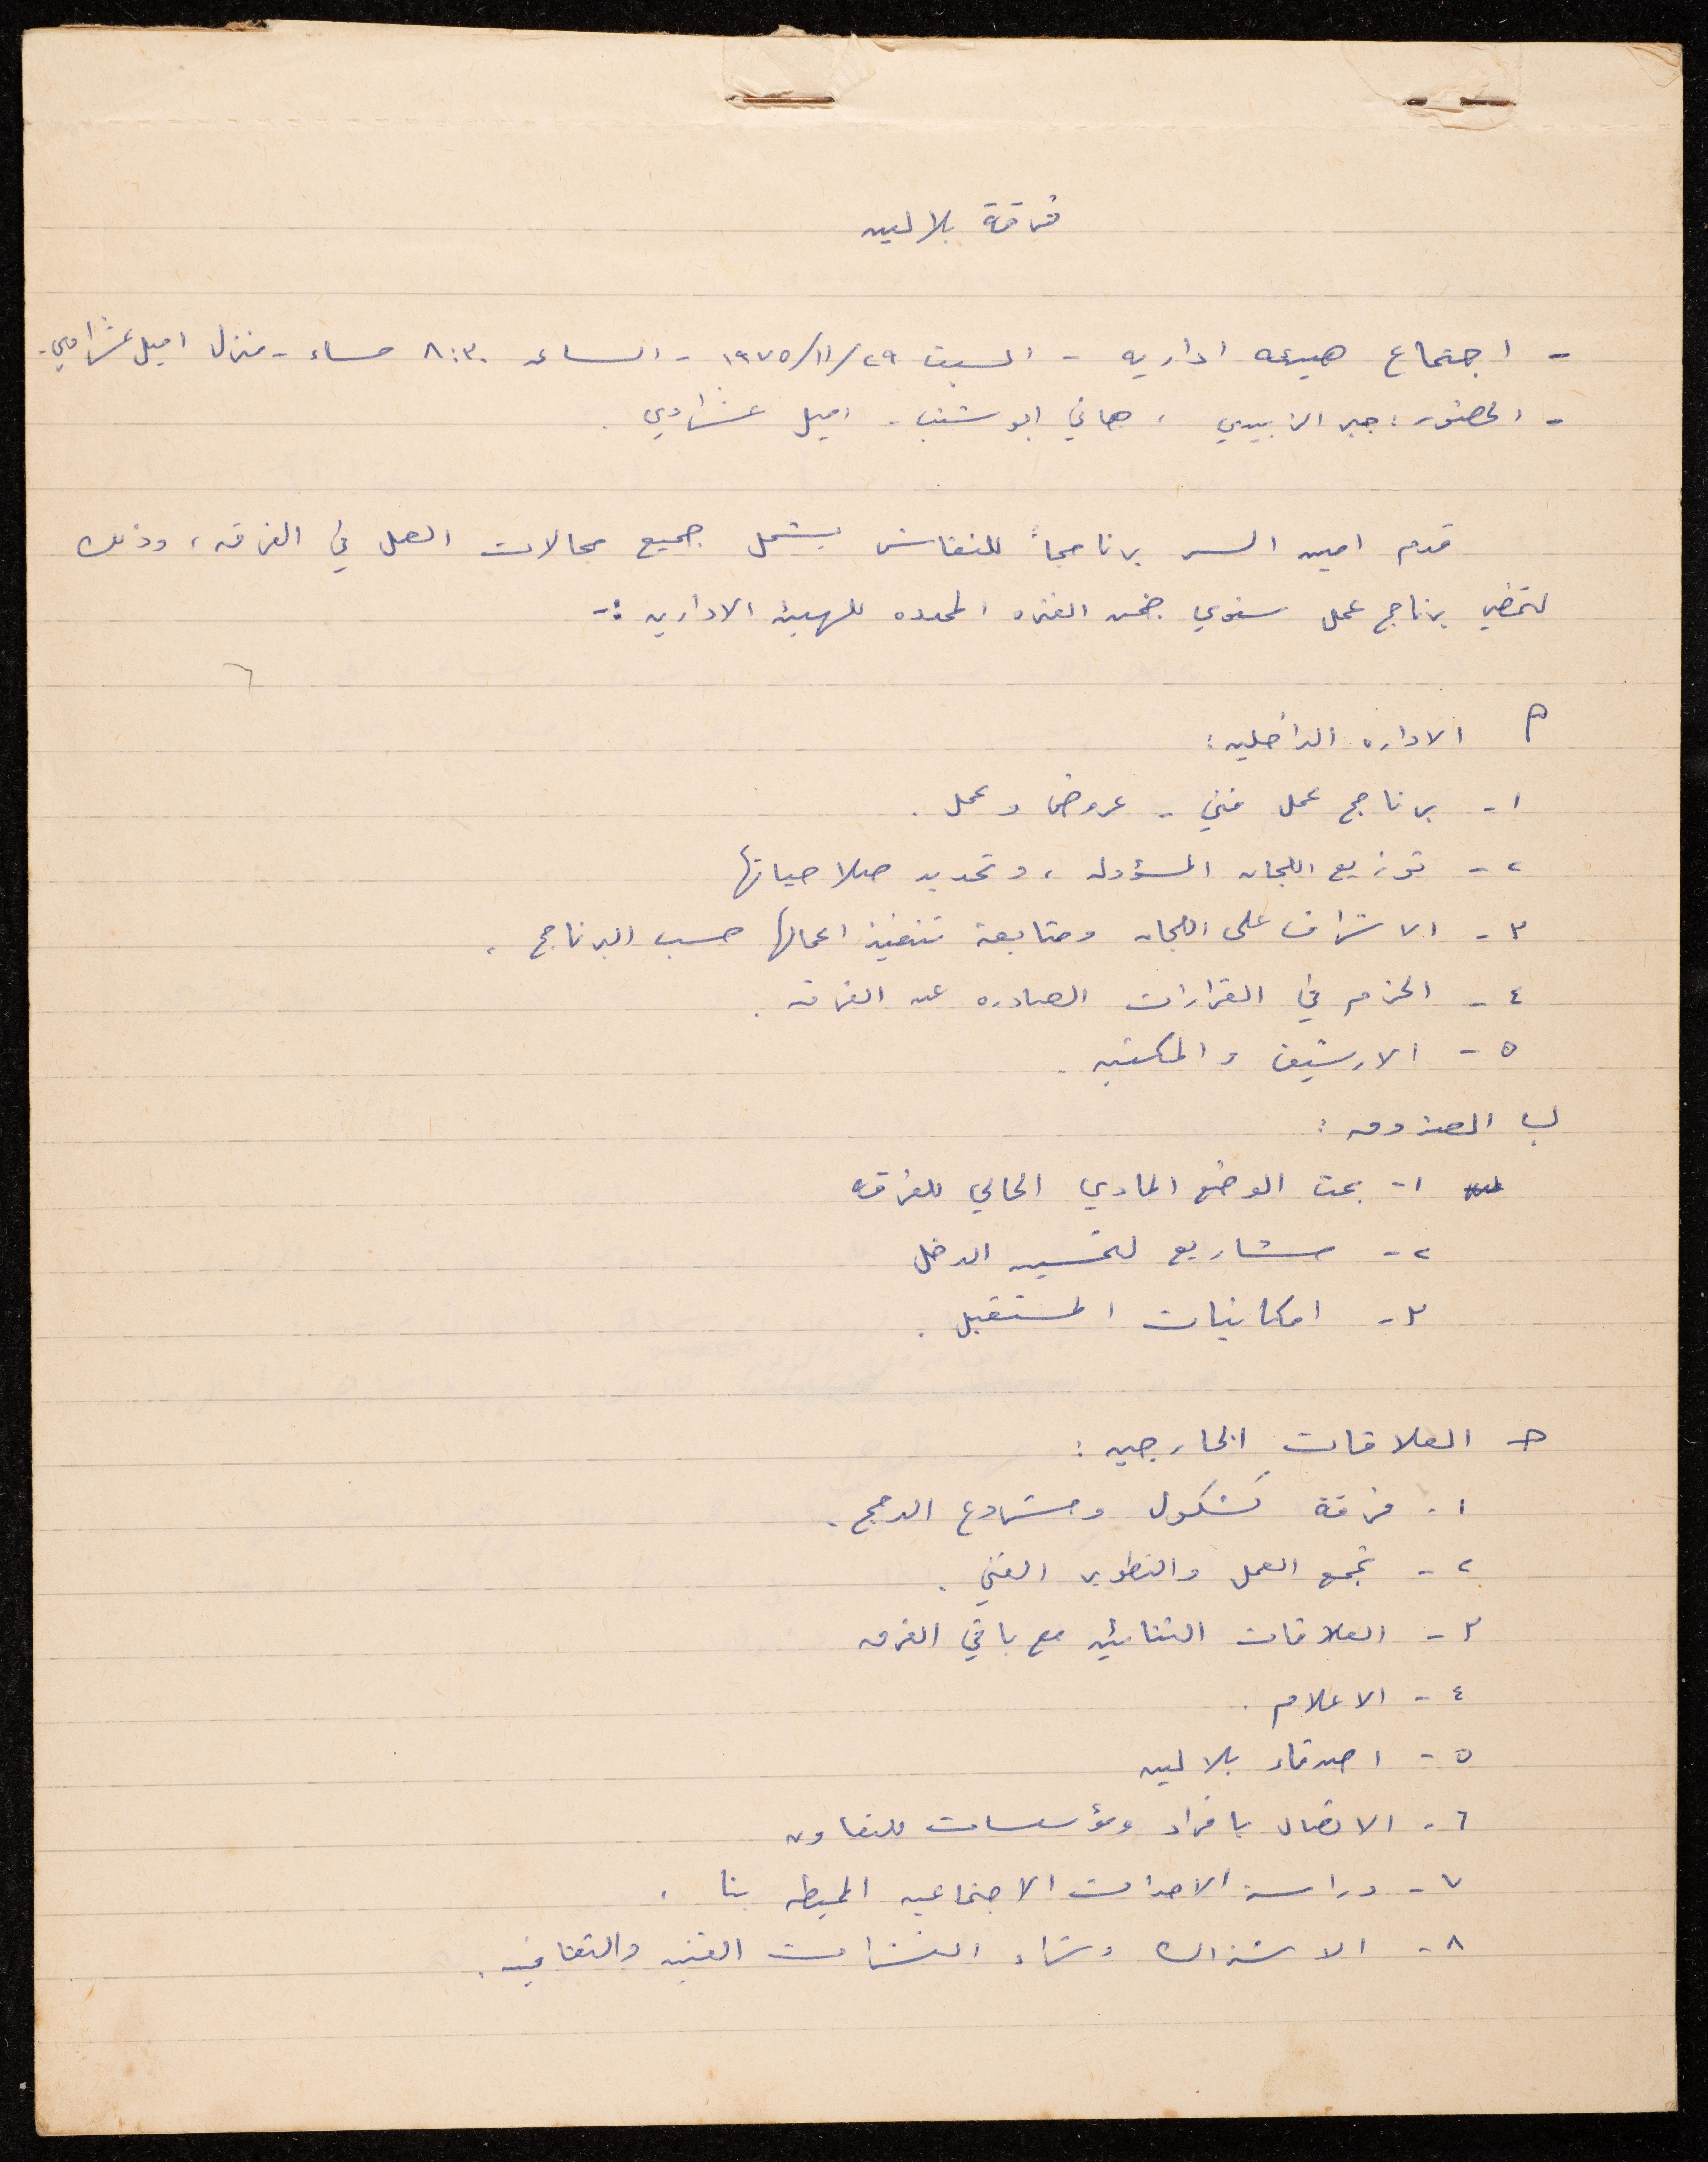 فرقة بلالين
- اجتماع هيئه اداريه - السبت ٢٩/١١/١٩٧٥ - الساعه ٨:٣٠ مساء - منزل اميل عشراوي -
- الحضور : جبر الزبيدي ، هاني ابو شنب - اميل عشراوي .
قدم امين السر برنامجاً للنقاش يشمل جميع مجالات العمل في الفرقه ، وذلك
لتحضير برنامج عمل سنوي ضمن الفتره المحدده للهيئه الاداريه :-
أ الاداره الداخليه :
١- برنامج عمل فني - عروض وعمل .
٢- توزيع اللجان المسؤوله ، وتحديد صلاحياتها
٣- الاشراف على اللجان ومتابعة تنفيذ اعمالها حسب البرنامج .
٤- الحزم في القرارات الصادره عن الفرقه .
٥- الارشيف والمكتبه .
ب الصندوق :
١- بحث الوضع المادي الحالي للفرقه
٢- مشاريع لتحسين الدخل
٣- امكانيات المستقبل .
ج العلاقات الخارجيه :
١- فرقة كشكول ومشروع الدمج .
٢- تجمع العمل والتطوير الفني .
٣- العلاقات الثنائيه مع باقي الفرق
٤- الاعلام .
٥- اصدقاء بلالين
٦- الاتصال بافراد ومؤسسات للتعاون
٧- دراسة الاحداث الاجتماعيه المحيطه بنا .
٨- الاشتراك وشراء النشرات الفنيه والثقافيه .